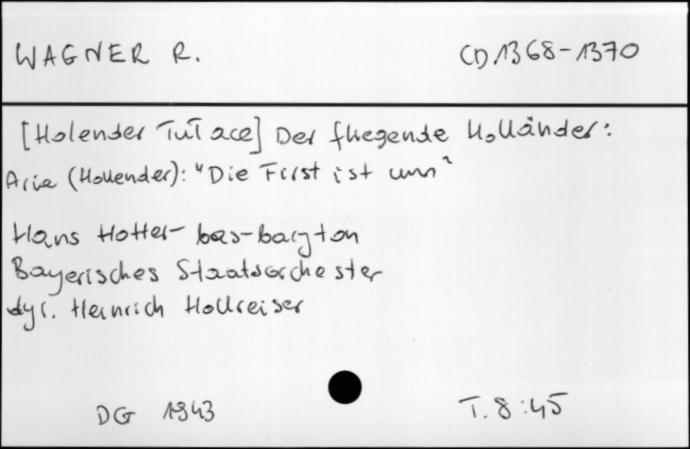 WAGNER R. CD 1368-1370
[Holender Tułacz] Der fliegende Holländer:
Aria (Hollender): "Die Frist ist um"
Hans Hotter - bas-baryton
Bayerisches Staatsorchester
dyr. Heinrich Hollreiser
DG 1943 T. 8:45